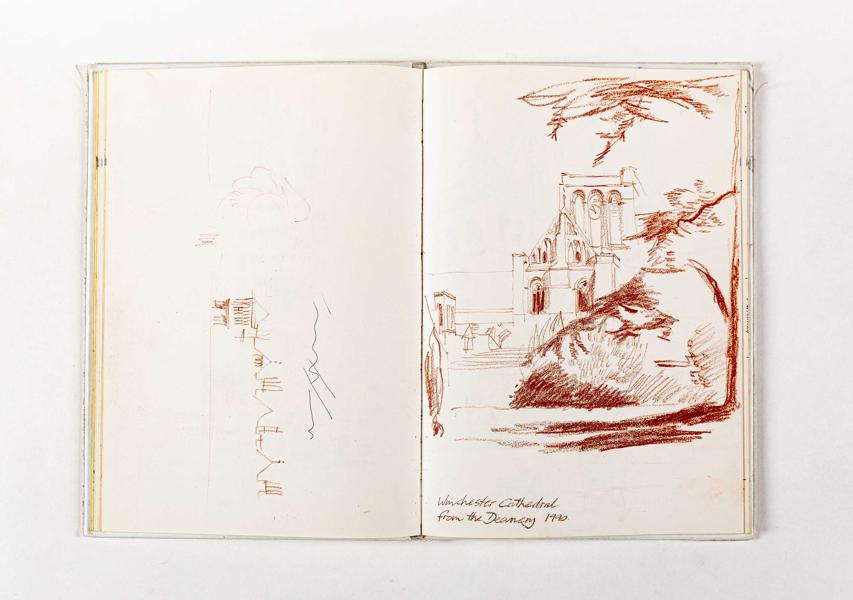 Winchester Cathedral
from the Deanery 1990.